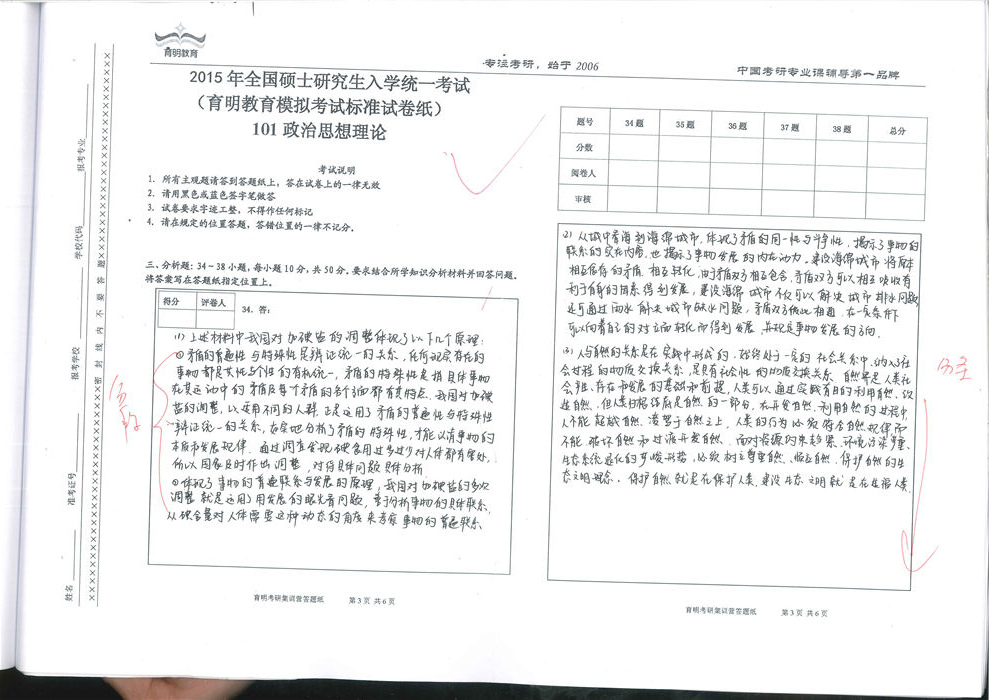 育明教育
专注考研，始于 2006
中国考研专业课辅导第一品牌
2015 年全国硕士研究生入学统一考试
（育明教育模拟考试标准试卷纸）
101 政治思想理论
考试说明
1. 所有主观题请答到答题纸上，答在试卷上的一律无效
2. 请用黑色或蓝色签字笔做答
3. 试卷要求字迹工整，不得作任何标记
4. 请在规定的位置答题，答错位置的一律不记分。
三、分析题：34－38 小题，每小题 10 分，共 50 分。要求结合所学知识分析材料并回答问题。
将答案写在答题纸指定位置上。
得分 评卷人
34. 答：
(1) 上述材料中我国对加碘盐的调整体现了以下几个原理：
①矛盾的普遍性与特殊性是辩证统一的关系，任何现实存在的
事物都是共性与个性的有机统一，矛盾的特殊性是指具体事物
在其运动中的矛盾及每个矛盾的各个方面都有其特点。我国对加碘
盐的调整，以实用不同的人群，正是运用了矛盾的普遍性与特殊性
辩证统一的关系，在实地分析了矛盾的特殊性，才能认清事物的
本质和发展规律。通过调查发现，碘食用过多过少对人体都有害处，
所以国家及时作出调整，对待具体问题具体分析
②体现了事物的普遍联系与发展的原理，我国对加碘盐的多次
调整就是运用了用发展的眼光看问题，善于分析事物的具体联系，
从碘含量对人体需要这种动态的角度来考察事物的普遍联系
育明考研集训营答题纸 第 3 页 共 6 页
题号 34 题 35 题 36 题 37 题 38 题 总分
分数
阅卷人
审核
(2) 从城中看海到海绵城市，体现了矛盾的同一性与斗争性，揭示了事物的
联系的实在内容，也揭示了事物发展的内在动力。建设海绵城市将原本
相互居存的矛盾，相互转化，由于矛盾双方相互包含，矛盾双方可以相互吸收有
利于自身的因素得到发展，建设海绵城市不仅可以解决城市排水问题
还可通过雨水解决城市缺水问题，矛盾双方彼此相通，在一定条件下
可以向着自己的对立面转化而得到发展，并规定事物发展的方向。
(3) 人与自然的关系是在实践中形成的，始终处于一定的社会关系中，纳入社
会过程的物质交换关系，是具有社会性的物质交换关系。自然界是人类社
会产生、存在和发展的基础和前提，人类可以通过实践有目的利用自然、改
造自然，但人类归根结底是自然的一部分，在开发自然、利用自然的过程中，
人不能超越自然、凌驾于自然之上，人类的行为必须符合自然规律而
不能破坏自然和过渡开发自然。面对资源约束趋紧、环境污染严重、
生态系统退化的严峻形势，必须树立尊重自然、顺应自然、保护自然的生
态文明理念。保护自然就是在保护人类，建设生态文明就是在造福人类。
育明考研集训营答题纸 第 3 页 共 6 页
报考专业
学校代码
报考学校
准考证号
姓名
密封线内不要答题